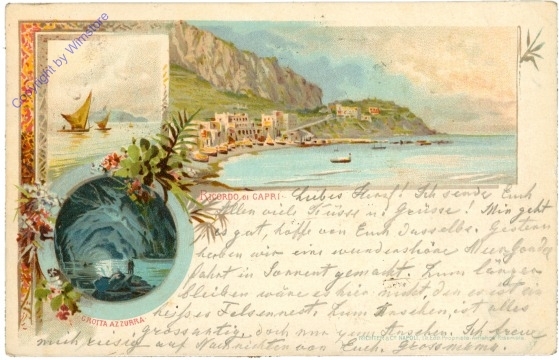 Copyright by Winstore
RICORDO DI CAPRI
GROTTA AZZURRA
Liebes ! Ich sende Euch
Allen viele Küsse u. Grüsse! Mir geht
es gut, hoffe von Euch Dasselbe. Gestern
haben wir eine wunderschöne
fahrt in Sorrent gemacht. Zum länger
bleiben wäre es hier nicht, den es ist ein
heisses Felsennest. Zum Naschen, ist alles
grossartig, doch nur zum Naschen. Ich freue
mich riesig auf Nachrichten von Euch. Grossmama.